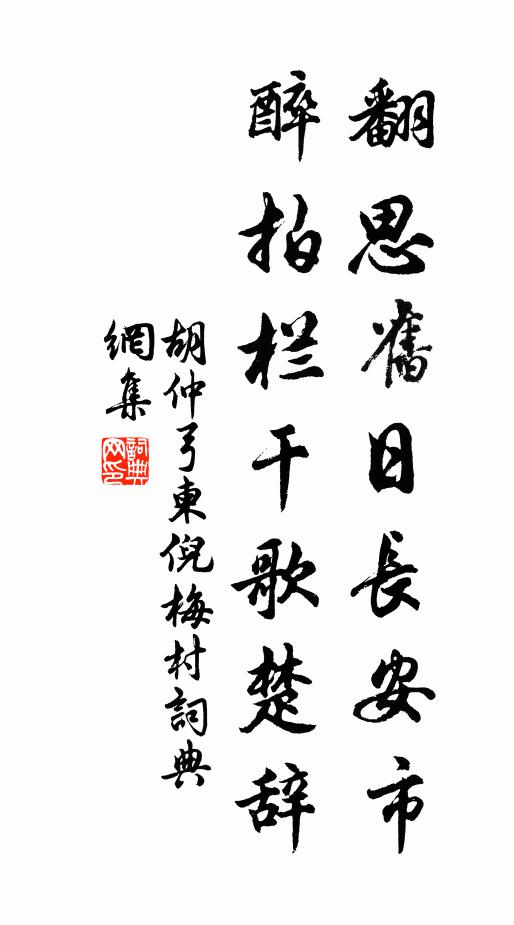 翻思舊日長安市
醉拍栏干歌楚辞
胡仲弓東倪梅村詞典
網集
詞典网印